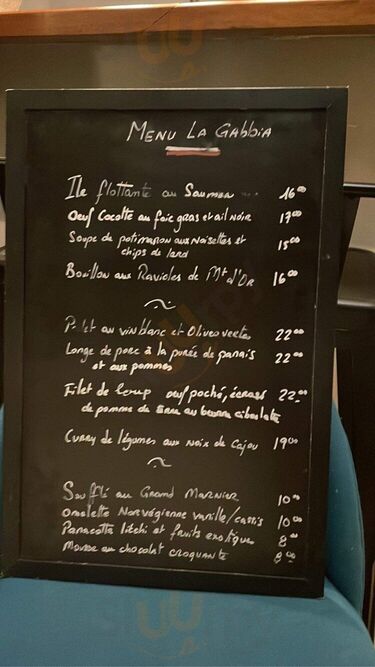 MENU LA GABBIA
Ile flottante au Saumon ... 16⁰⁰
Oeuf Cocotte au foie gras et ail noir 17⁰⁰
Soupe de potimarron aux Noisettes et 15⁰⁰
chips de lard
Bouillon aux Ravioles de Mt d'Or 16⁰⁰
au vin blanc et Olives vertes 22⁰⁰
Longe de porc à la purée de panais 22⁰⁰
et aux pommes
Filet de loup oeuf poché, écrasé 22.⁰⁰
de pomme de terre au beurre ciboulette
Curry de légumes aux noix de Cajou 19⁰⁰
Soufflé au GRAND MARNIER 10⁰⁰
Omelette Norvégienne vanille/cassis 10⁰⁰
Panacotta litchi et fruits exotiques 8⁰⁰
Mousse au chocolat croquante 8⁰⁰